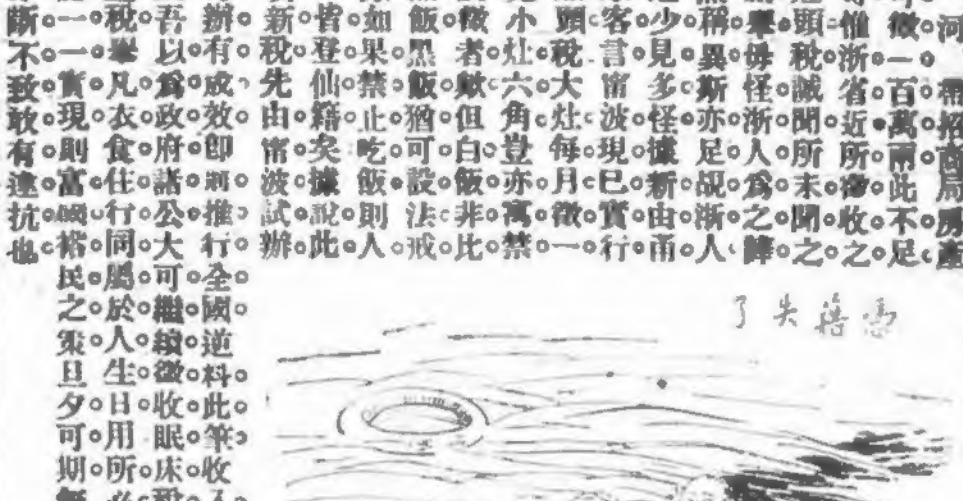 河。需招商局房產
徵一百萬兩此不足
惟浙省近所徵收之
頭稅誠聞所未聞之
舉毋怪浙人爲之譁
稱異斯亦足覘浙人
少見多怪據新由甬
客言甯波現已實行
頭稅大灶每月徵一
小灶六角豈亦寓禁
徵者歟但白飯非比
飯黑飯猶可設法戒
如果禁止吃飯則人
皆登仙籍矣據說此
新稅先由甯波試辦
辦有成效卽將推行全國逆料此筆收
吾以爲政府諸公大可繼續徵收眠床稅
稅舉凡衣食住行同屬於人生日用所必
一實現則富國裕民之策旦夕可期
斷不致敢有違抗也
失了